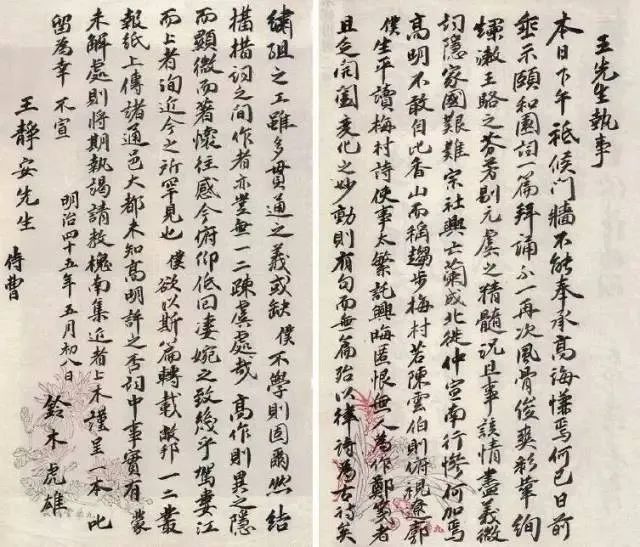 王先生執事
本日下午祗候門牆不能奉承高誨慊焉何已日前
垂示頤和園詞一篇拜誦不一再次風骨俊爽彩華絢
爛漱王駱之芬芳剔元虞之精髓況且事該情盡義微
均隱家國艱難宗社興亡蘭成北徙仲宣南行慘何加焉
高明不敢自比香山而稱趨步梅村若陳雲伯則俯視遼廓
僕生平讀梅村詩使事太繁託興晦匿恨無人為作鄭箋者
且乏開闔變化之妙動則有句而無篇殆以律詩為古詩矣
繡組之工雖多貫通之義或缺僕不學則固爾然結
撰措詞之間作者亦豈無一二疎虞處哉高作則異之隱
而顯微而著懷往感今俯仰低回淒婉之致幾乎駕婁江
而上者洵近今之所罕見也僕欲以斯篇轉載敝邦一二叢
報紙上傳諸通邑大都未知高明許之否詞中事實有蒙
未解處則將期執謁請教槐南集近者上木謹呈一本此
留為幸不宣
王靜安先生侍曹
明治四十五年五月初八日
鈴木虎雄